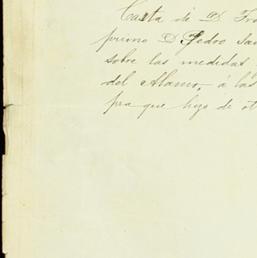 Carta de D. Fra
primo D. Pedro Sa
sobre las medidas
del Alamo, á las
pra que hizo de ot